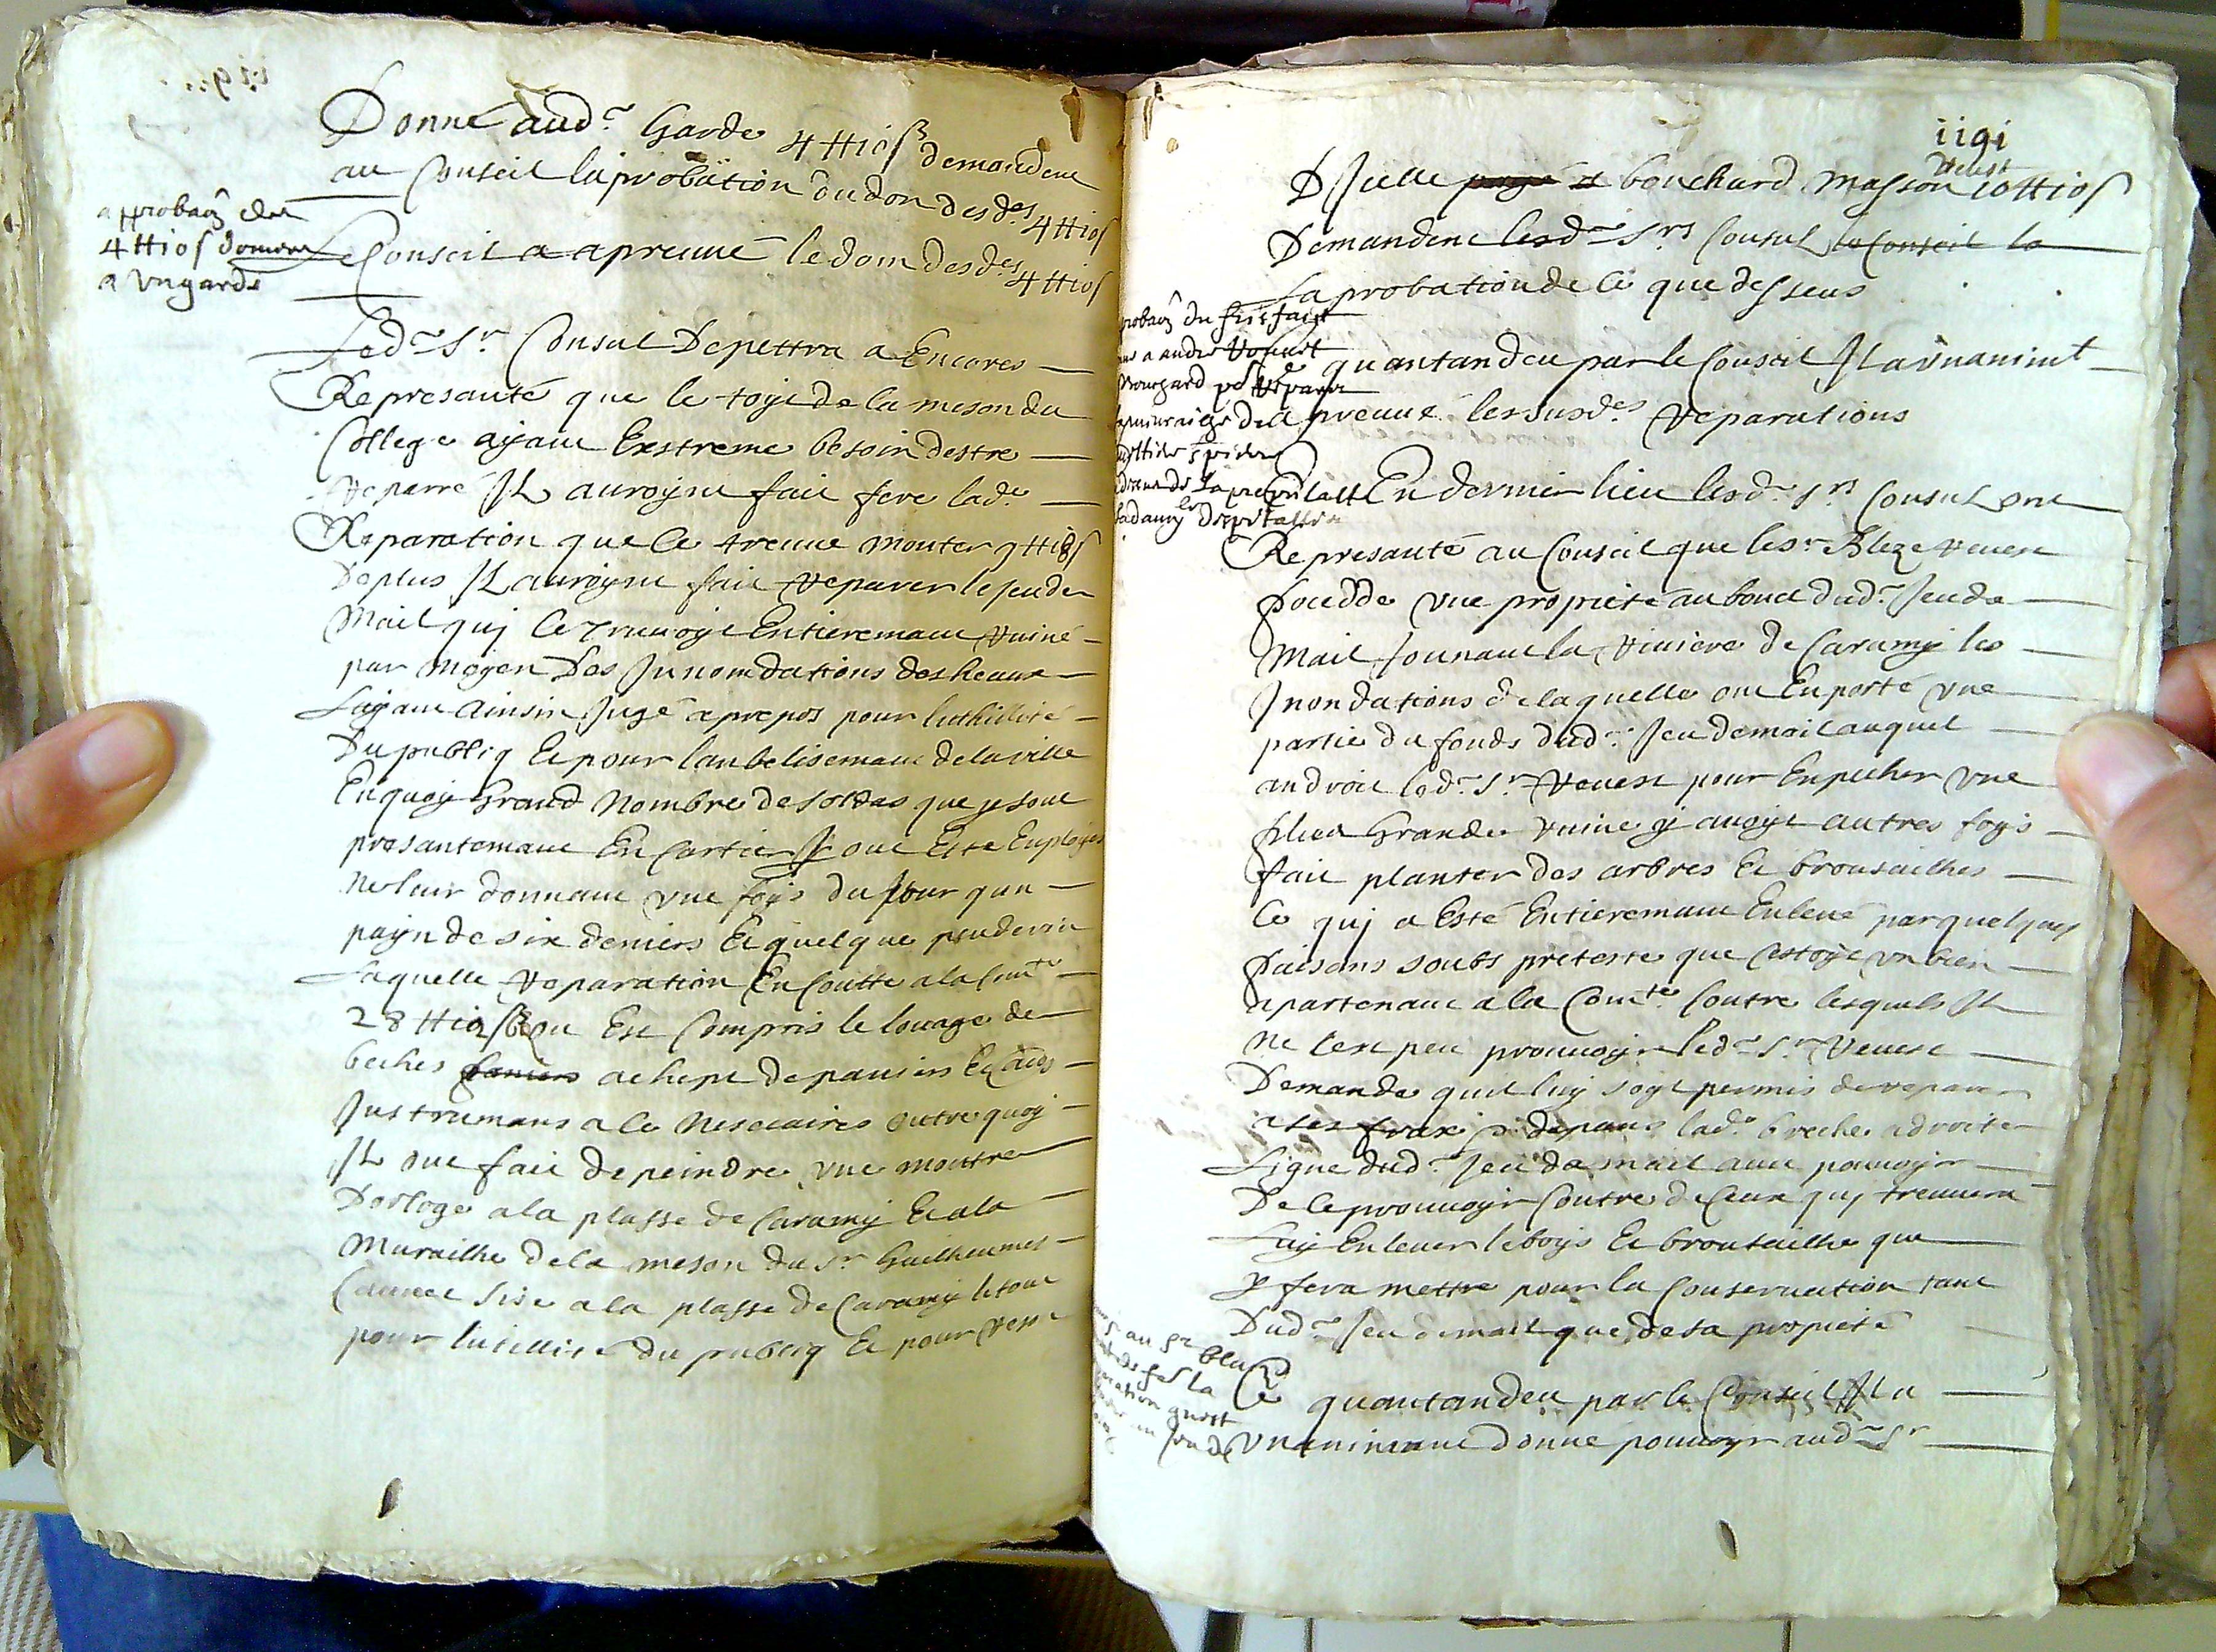 Donné aud.^r Garde 4 ₶ 10 s demandent
au Conseil laprobation du don desd.^es 4 ₶ 10 s
approba͠on des
4 ₶ 10 s donnees
a un garde
Le Conseil a apreuvé le dom desd.^es 4 ₶ 10 s
Led.^r S.^r Consul Depettra a Encores
Represanté que le toyt de la meson du
College ayant Exstreme besoin destre
reparré Il auroynt fait fere lad.^e
Reparation que ce treuve monter 9 ₶ 8 s
De plus Il auroynt fait reparer le jeu de
Mail quj ce truvoyt Entieremant ruiné
par moyen Des Innomdations des heaux
Layant Ainsin Jugé a propos pour luthillité
Du publiq Et pour lanbelisemant de la ville
En quoy Grand Nombre de soldas que y sont
presantemant En Cartier Y ont Esté Employés
ne leur donnant une foys du Jour qun
payn de six deniers Et quelque peu de vin
Laquelle reparation En Coutte a la Com.^te
28 ₶ ou Est Compris le louage de
beches achept de paniers Et au͠es
Instrumans a ce Nesesaires outre quoy
Il ont fait depeindre une montre
Dorloge a la plasse de Caramy Et a la
Murailhe de la meson du S.^r Guilheumes
Caunet sise a la plasse de Caramy le tout
pour lutillité du publiq Et pour reste
1191
D Jcelle payé a bouchard Masson reste 10 ₶ 10 s
Demandent lesd.^s S.^rs Consul le Conseil la
Laprobation de ce que dessus
Ce quantandeu par le Conseil Il a unanim.^t
apreuvé les susd.^es reparations
En dernier lieu lesd.^s S.^rs Consul ont
Represanté au Conseil que le s.^r Bleze veuest
pocedde une proprieté au bout dud.^r Jeu de
Mail Jougnant la riviere de Caramy les
Inondations de laquelle ont Enporté une
partie du fonds dud.^r Jeu de mail auquel
androit led.^r S.^r Veuest pour Enpecher une
plus Grande ruine y avoyt autres foys
fait planter des arbres Et brousailhes
Ce quj a Esté Entieremant Enlevé par quelques
paisans soubs preteste que cestoyt un bien
apartenant a la Com.^te Contre lesquels Il
ne cest peu prouvoyr led.^r S.^r Veuest
Demande quil luy soyt permis de reparer
a ses frais & depans lad.^e breche a droite
Ligne dud.^r Jeu de mail avec pouvoyr
De ce prouvoyr Contre de Ceux quj treuvera
Luy Enlever le boys Et broutailhe que
y fera mettre pour la Conservation tant
Dud.^r Jeu de mail que de sa propieté
Ce quantandeu par le Conseil Il a
Unanimant donné pouvoyr aud.^r S.^r